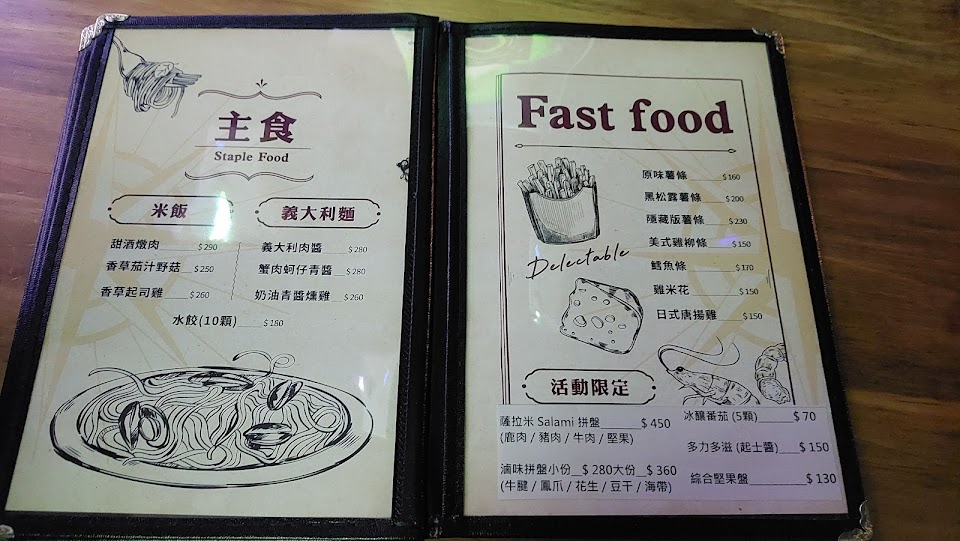 主食
Staple Food
米飯
甜酒燉肉 $290
香草茄汁野菇 $250
香草起司雞 $260
義大利麵
義大利肉醬 $280
蟹肉蚵仔青醬 $280
奶油青醬燻雞 $260
水餃(10顆) $180
Fast food
原味薯條 $160
黑松露薯條 $200
隱藏版薯條 $230
美式雞柳條 $150
鱈魚條 $170
雞米花 $150
日式唐揚雞 $150
Delectable
活動限定
薩拉米 Salami 拼盤 $ 450
(鹿肉 / 豬肉 / 牛肉 / 堅果)
滷味拼盤小份 $ 280大份 $ 360
(牛腱 / 鳳爪 / 花生 / 豆干 / 海帶)
冰釀番茄 (5顆) $ 70
多力多滋 (起士醬) $ 150
綜合堅果盤 $ 130